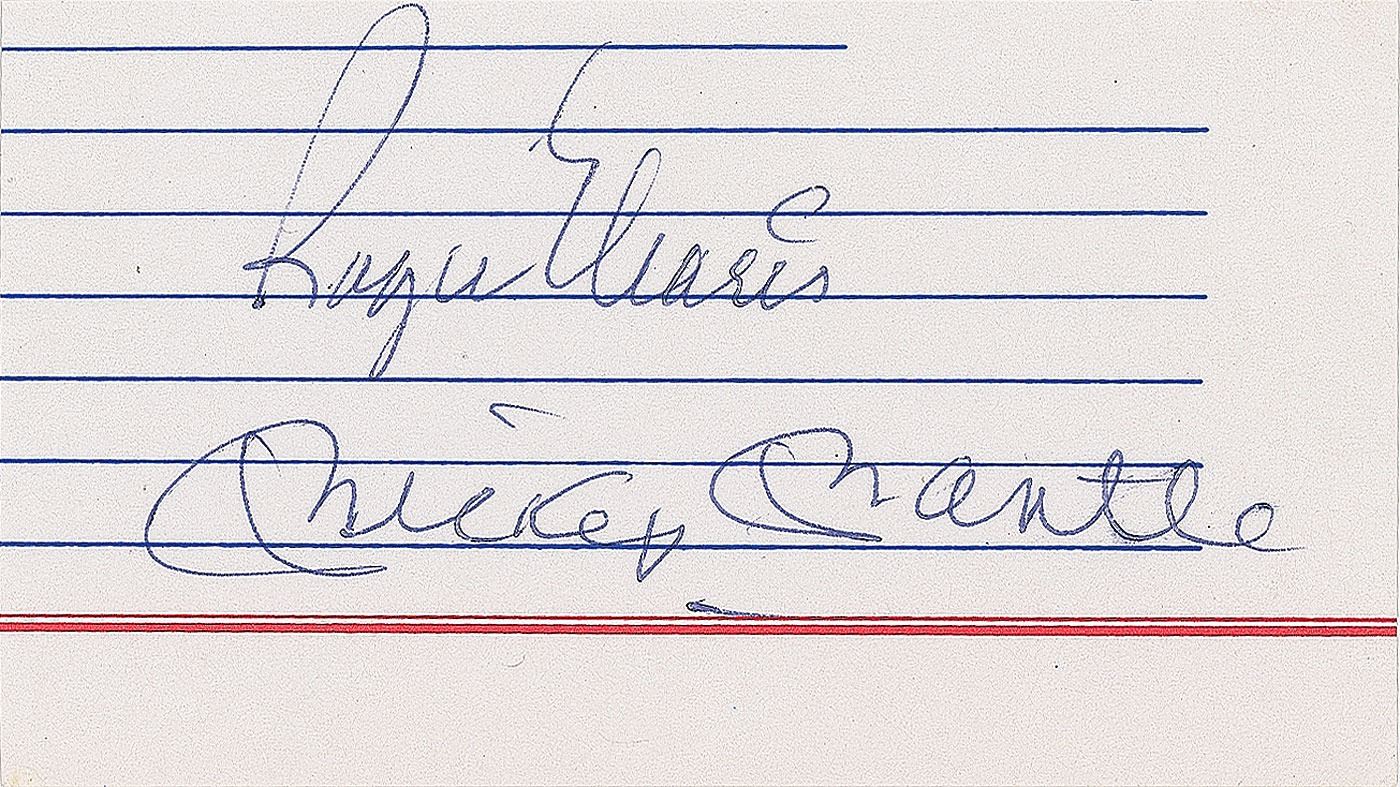 Roger Maris
Mickey Mantle